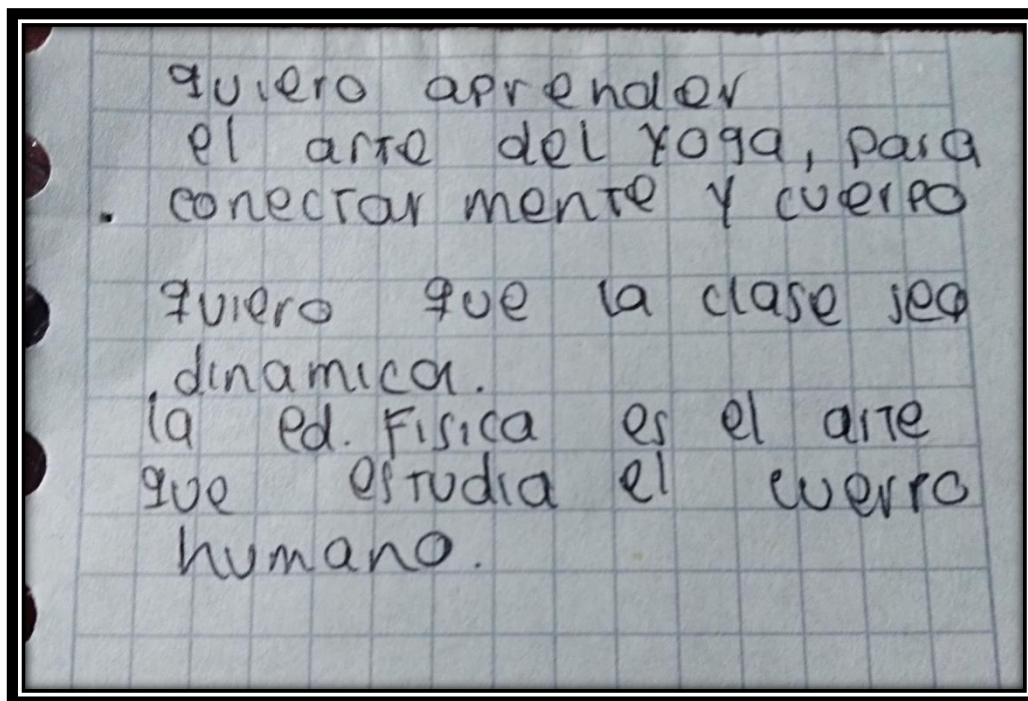 quiero aprender
el arte del yoga, para
. conectar mente y cuerpo
quiero que la clase sea
dinamica.
la ed. Fisica es el arte
que estudia el cuerpo
humano.